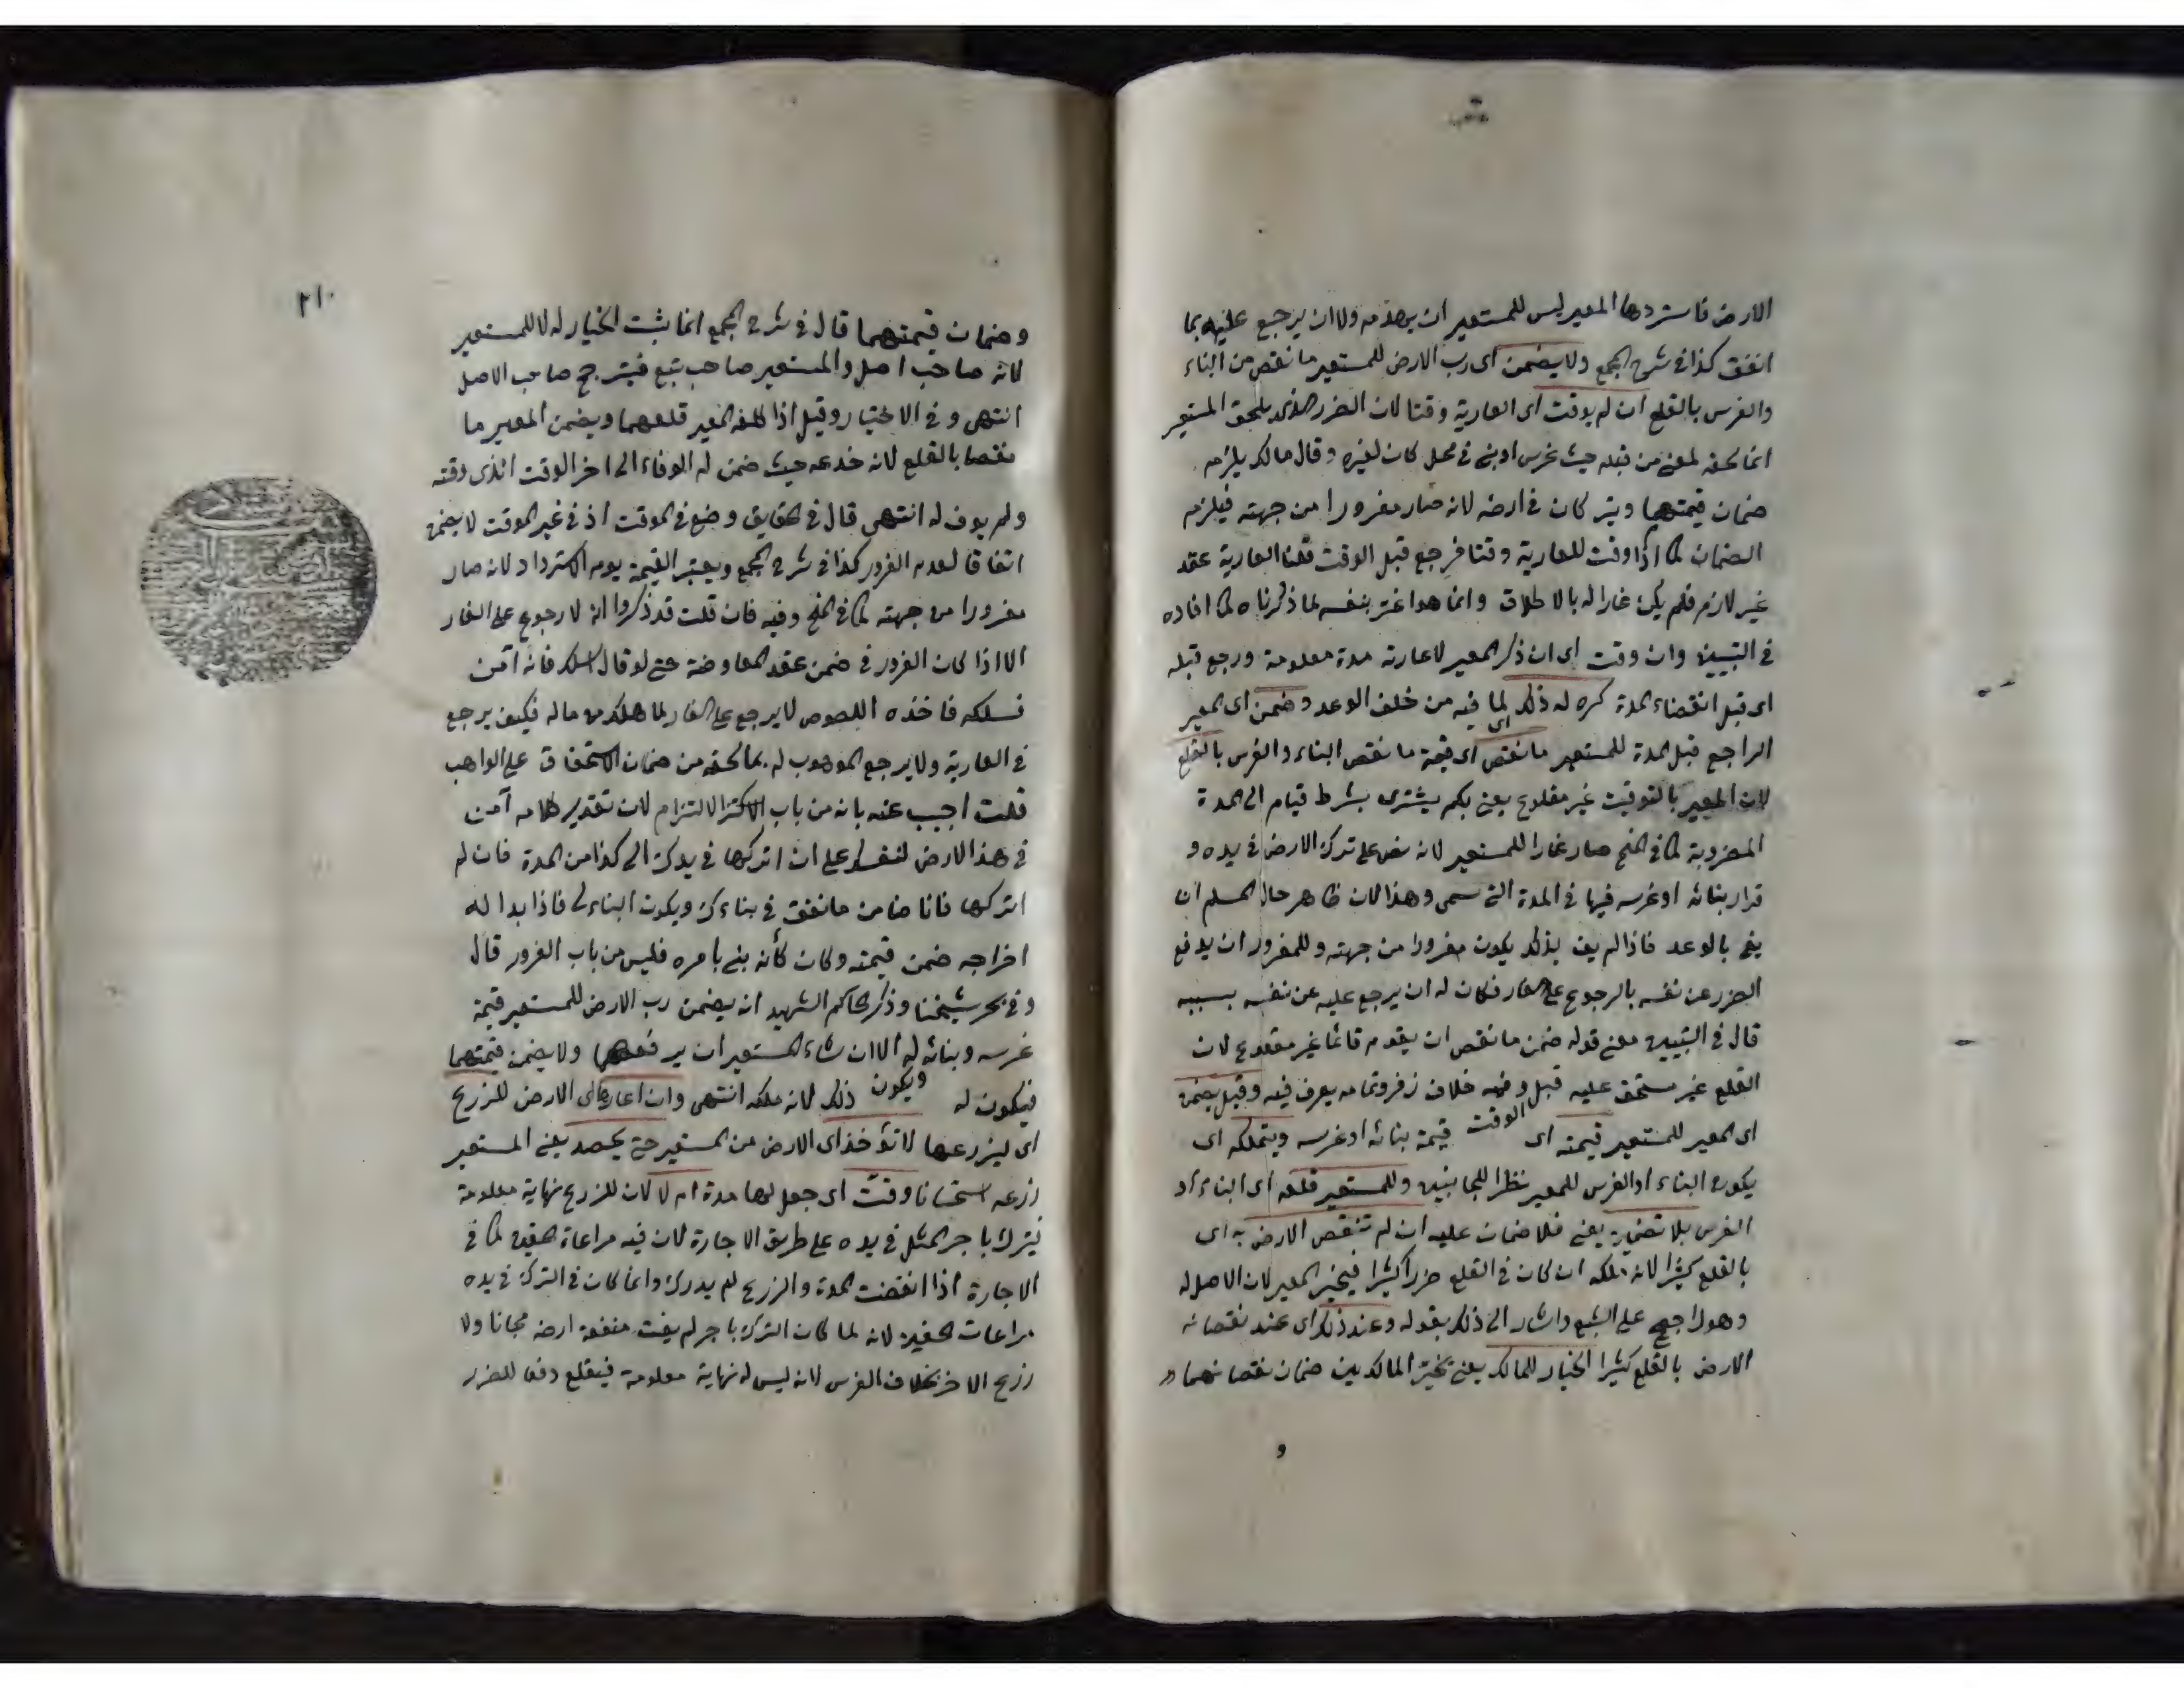 الارض فاستردها المعير ليس للمستعير ان يهدمه ولا ان يرجع عليه بما
انفق كذا في شرح المجمع ولا يضمن اى رب الارض للمستعير ما نقص من البناء
والغرس بالقلع ان لم يوقت اى العارية وقتا لان الضرر الذى يلحق المستعير
انما لحقه لمعنى من قبله حيث غرس او بنى في محل كان لغيره وقال مالك يلزمه
ضمان قيمتهما ويتركان في ارضه لانه صار مغرورا من جهته فيلزمه
الضمان كما اذا وقت للعارية وقتا فرجع قبل الوقت قلنا العارية عقد
غير لازم فلم يكن غارا له بالاطلاق وانما هو اغتر بنفسه لما ذكرناه كما افاده
في التبيين وان وقت اى ان ذكر المعير لاعارته مدة معلومة ورجع قبله
اى قبل انقضاء المدة كره له ذلك لما فيه من خلف الوعد وضمن اى المعير
الراجع قبل المدة للمستعير ما نقص اى قيمة ما نقص البناء والغرس بالقلع
لان المعير بالتوقيت غير مقلوع يعنى بكم يشترى بشرط قيام الى المدة
المضروبة كما في المنح صار غارا للمستعير لانه نص على ترك الارض في يده و
قرار بنائه او غرسه فيها في المدة التى سمى وهذا لان ظاهر حال المسلم ان
يفى بالوعد فاذا لم يف بذلك يكون مغرورا من جهته وللمغرور ان يدفع
الضرر عن نفسه بالرجوع على الغار فكان له ان يرجع عليه عن نفسه بسببه
قال في التبيين معنى قوله ضمن ما نقص ان يقوم قائما غير مقلوع لان
القلع غير مستحق عليه قبل وفيه خلاف زفر وتمامه يعرف فيه وقيل يضمن
اى المعير للمستعير قيمته اى الوقت قيمة بنائه او غرسه ويتملكه اى
يكون البناء او الغرس للمعير نظرا للجانبين وللمستعير قلعه اى البناء او
الغرس بلا تضمين يعنى فلا ضمان عليه ان لم تنقص الارض به اى
بالقلع كثيرا لانه ملكه ان كان في القلع ضررا كثيرا فيخير المعير لان الاصل له
وهو راجح على التبع واشار الى ذلك بقوله وعند ذلك اى عند نقصانه
الارض بالقلع كثيرا الخيار للمالك يعنى يخير المالك بين ضمان نقصانهما
و
٢١٠
وضمان قيمتهما قال في شرح المجمع انما يثبت الخيار له لا للمستعير
لانه صاحب اصل والمستعير صاحب تبع فيترجح صاحب الاصل
انتهى وفي الاختيار وقيل اذا كلفه المعير قلعهما ويضمن المعير ما
نقصا بالقلع لانه خدعه حيث ضمن له الوفاء الى اخر الوقت الذى وقته
ولم يوف له انتهى قال في الحقايق وضع في الموقت اذ في غير الموقت لا يضمن
اتفاقا لعدم الغرور كذا في شرح المجمع ويعتبر القيمة يوم الاسترداد لانه صار
مغرورا من جهته كما في المنح وفيه فان قلت قد ذكروا انه لا رجوع على الغار
الا اذا كان الغرور في ضمن عقد المعاوضة حتى لو قال اسلك فانه آمن
فسلكه فاخذه اللصوص لا يرجع على الغار لما هلك من ماله فكيف يرجع
في العارية ولا يرجع الموهوب له بما لحقه من ضمان الاستحقاق على الواهب
قلت اجيب عنه بانه من باب الالتزام لان تقدير كلامه آمن
في هذا الارض لنفسك على ان اتركها في يدك الى كذا من المدة فان لم
اتركها فانا ضامن ما تنفق في بناءك ويكون البناء لى فاذا بدا له
اخراجه ضمن قيمته وكان كأنه بنى بامره فليس من باب الغرور قال
وفي بحر شيخنا وذكر الحاكم الشهيد انه يضمن رب الارض للمستعير قيمة
غرسه وبنائه له الا ان شاء المستعير ان يرفعهما ولا يضمن قيمتهما
فيكون له ويكون ذلك لانه ملكه انتهى وان اعارها اى الارض للزرع
اى ليزرعها لا تؤخذ اى الارض من المستعير حتى يحصد يعنى المستعير
زرعه استحسانا وقت اى جعل لها مدة ام لا لان للزرع نهاية معلومة
فيترك باجر المثل في يده على طريق الاجارة لان فيه مراعاة الحقين كما في
الاجارة اذا انقضت المدة والزرع لم يدرك وانما كان في الترك في يده
مراعات الحقين لانه لما كان الترك باجر لم يفت منفعة ارضه مجانا ولا
زرع الاخر بخلاف الغرس لانه ليس له نهاية معلومة فيقلع دفعا للضرر